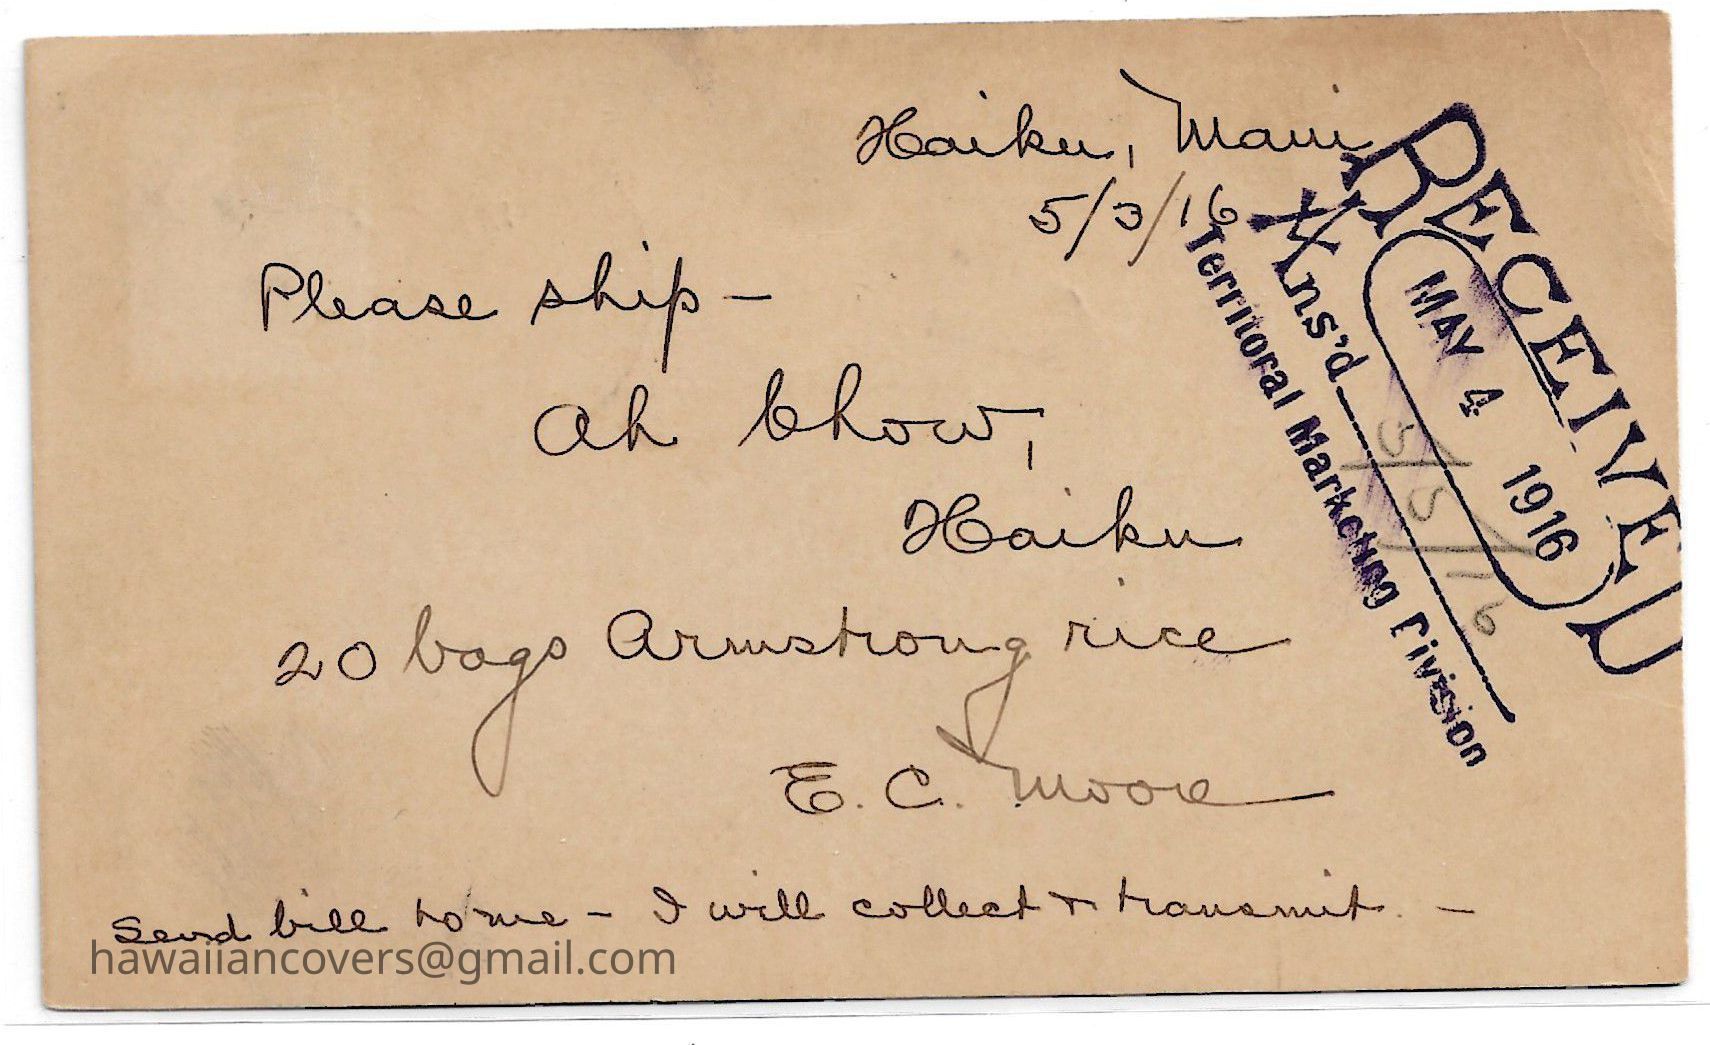 Haiku, Maui
5/3/16
Please ship –
Ah Chow,
Haiku
20 bags Armstrong rice
E. C. Moore
Send bill to me – I will collect & transmit. –
RECEIVED
MAY 4 1916
Ans'd
5/5/16
Territoral Marketing Division
hawaiiancovers@gmail.com